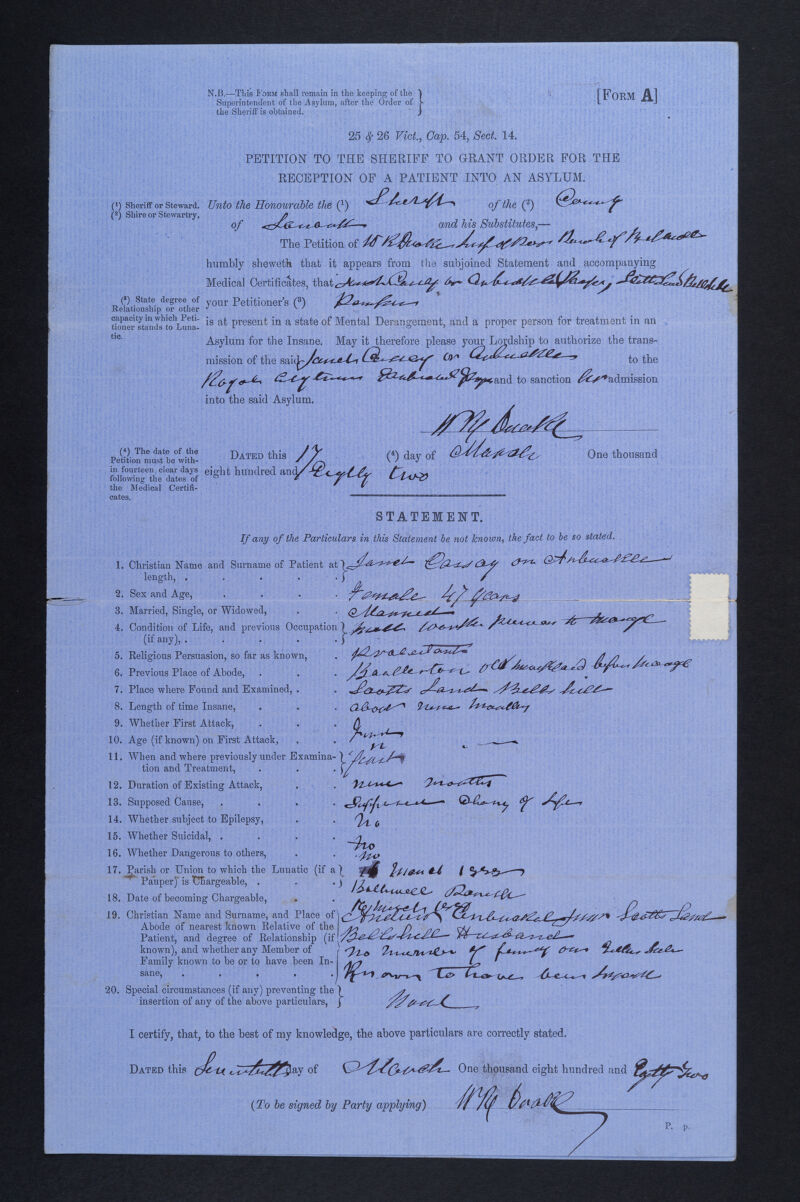 N.B.—This Form shall remain in the keeping of the
Superintendent of the Asylum, after the Order of
the Sheriff is obtained.
[Form A]
25 & 26 Vict., Cap. 54, Sect. 14.
PETITION TO THE SHERIFF TO GRANT ORDER FOR THE
RECEPTION OF A PATIENT INTO AN ASYLUM.
(¹) Sheriff or Steward.
(²) Shire or Stewartry,
Unto the Honourable the (¹) Sheriff of the (²) County
of Lanark and his Substitutes,—
The Petition of Insp of Poor Parish of
humbly sheweth that it appears from the subjoined Statement and accompanying
Medical Certificates, that or Arbuckle Pauper, Scotts Land Bellshill
(³) State degree of
Relationship or other
capacity in which Peti-
tioner stands to Luna-
tic.
your Petitioner's (³)
is at present in a state of Mental Derangement, and a proper person for treatment in an
Asylum for the Insane. May it therefore please your Lordship to authorize the trans-
mission of the said Janet or Arbuckle to the
Royal Asylum and to sanction her admission
into the said Asylum.
(⁴) The date of the
Petition must be with-
in fourteen clear days
following the dates of
the Medical Certifi-
cates.
Dated this 17 (⁴) day of March One thousand
eight hundred and Eighty two
STATEMENT.
If any of the Particulars in this Statement be not known, the fact to be so stated.
1. Christian Name and Surname of Patient at length, . Janet Cassay or Arbuckle
2. Sex and Age, Female 47 years
3. Married, Single, or Widowed, Married
4. Condition of Life, and previous Occupation (if any), . Mill Worker previous to marage
5. Religious Persuasion, so far as known, Protestant
6. Previous Place of Abode, old Monkland before marage
7. Place where Found and Examined, . Scotts Land Bells hill
8. Length of time Insane, about nine months
9. Whether First Attack, First
10. Age (if known) on First Attack, "
11. When and where previously under Examina-
tion and Treatment,
12. Duration of Existing Attack, nine months
13. Supposed Cause, Supposed Change of Life
14. Whether subject to Epilepsy, No
15. Whether Suicidal, . No
16. Whether Dangerous to others, No
17. Parish or Union to which the Lunatic (if a
Pauper) is Chargeable, . Bothwell Parish
18. Date of becoming Chargeable, March
19. Christian Name and Surname, and Place of Andrew Arbuckle Scotts Land
Abode of nearest known Relative of the Bellshill Husband
Patient, and degree of Relationship (if
known), and whether any Member of no member of family
Family known to be or to have been In- Known to have been Insane
sane, .
20. Special circumstances (if any) preventing the
insertion of any of the above particulars, None
I certify, that, to the best of my knowledge, the above particulars are correctly stated.
Dated this day of March One thousand eight hundred and Eighty Two
(To be signed by Party applying)
P. p.